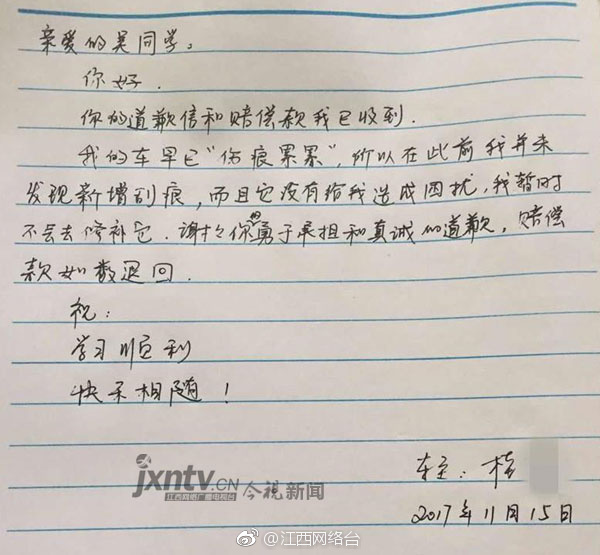 亲爱的吴同学。
你好.
你的道歉信和赔偿款我已收到.
我的车早已"伤痕累累",所以在此前我并未
发现新增刮痕,而且它没有给我造成困扰,我暂时
不会去修补它.谢谢你的勇于承担和真诚的道歉,赔偿
款如数退回.
祝:
学习顺利
快乐相随!
车主:桂
2017年11月15日
jxntv.CN 今视新闻
江西网络广播电视台
@江西网络台